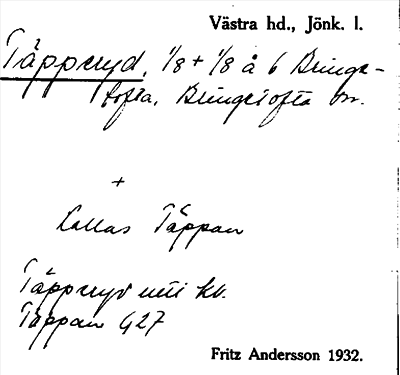 Västra hd., Jönk. l.
Täpperyd, 1/8 + 1/8 å 6 Bringe-
tofta, Bringetofta sn.
+
kallas Täppan
Täpperyd kb.
Täppan G27
Fritz Andersson 1932.